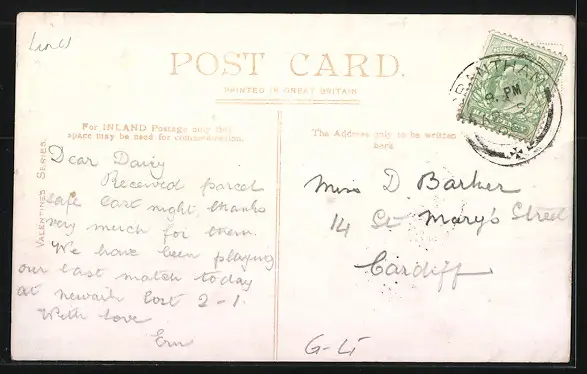 Lincs
POST CARD.
PRINTED IN GREAT BRITAIN
For INLAND Postage only this
space may be used for communication.
The Address only to be written
here
VALENTINES SERIES.
Dear Daisy
Received parcel
safe last night, thanks
very much for them.
We have been playing
our last match today
at Newark lost 2-1.
With love
Ern
Miss D Barker
14 St Mary's Street
Cardiff
G-4
GRANTHAM
8. PM